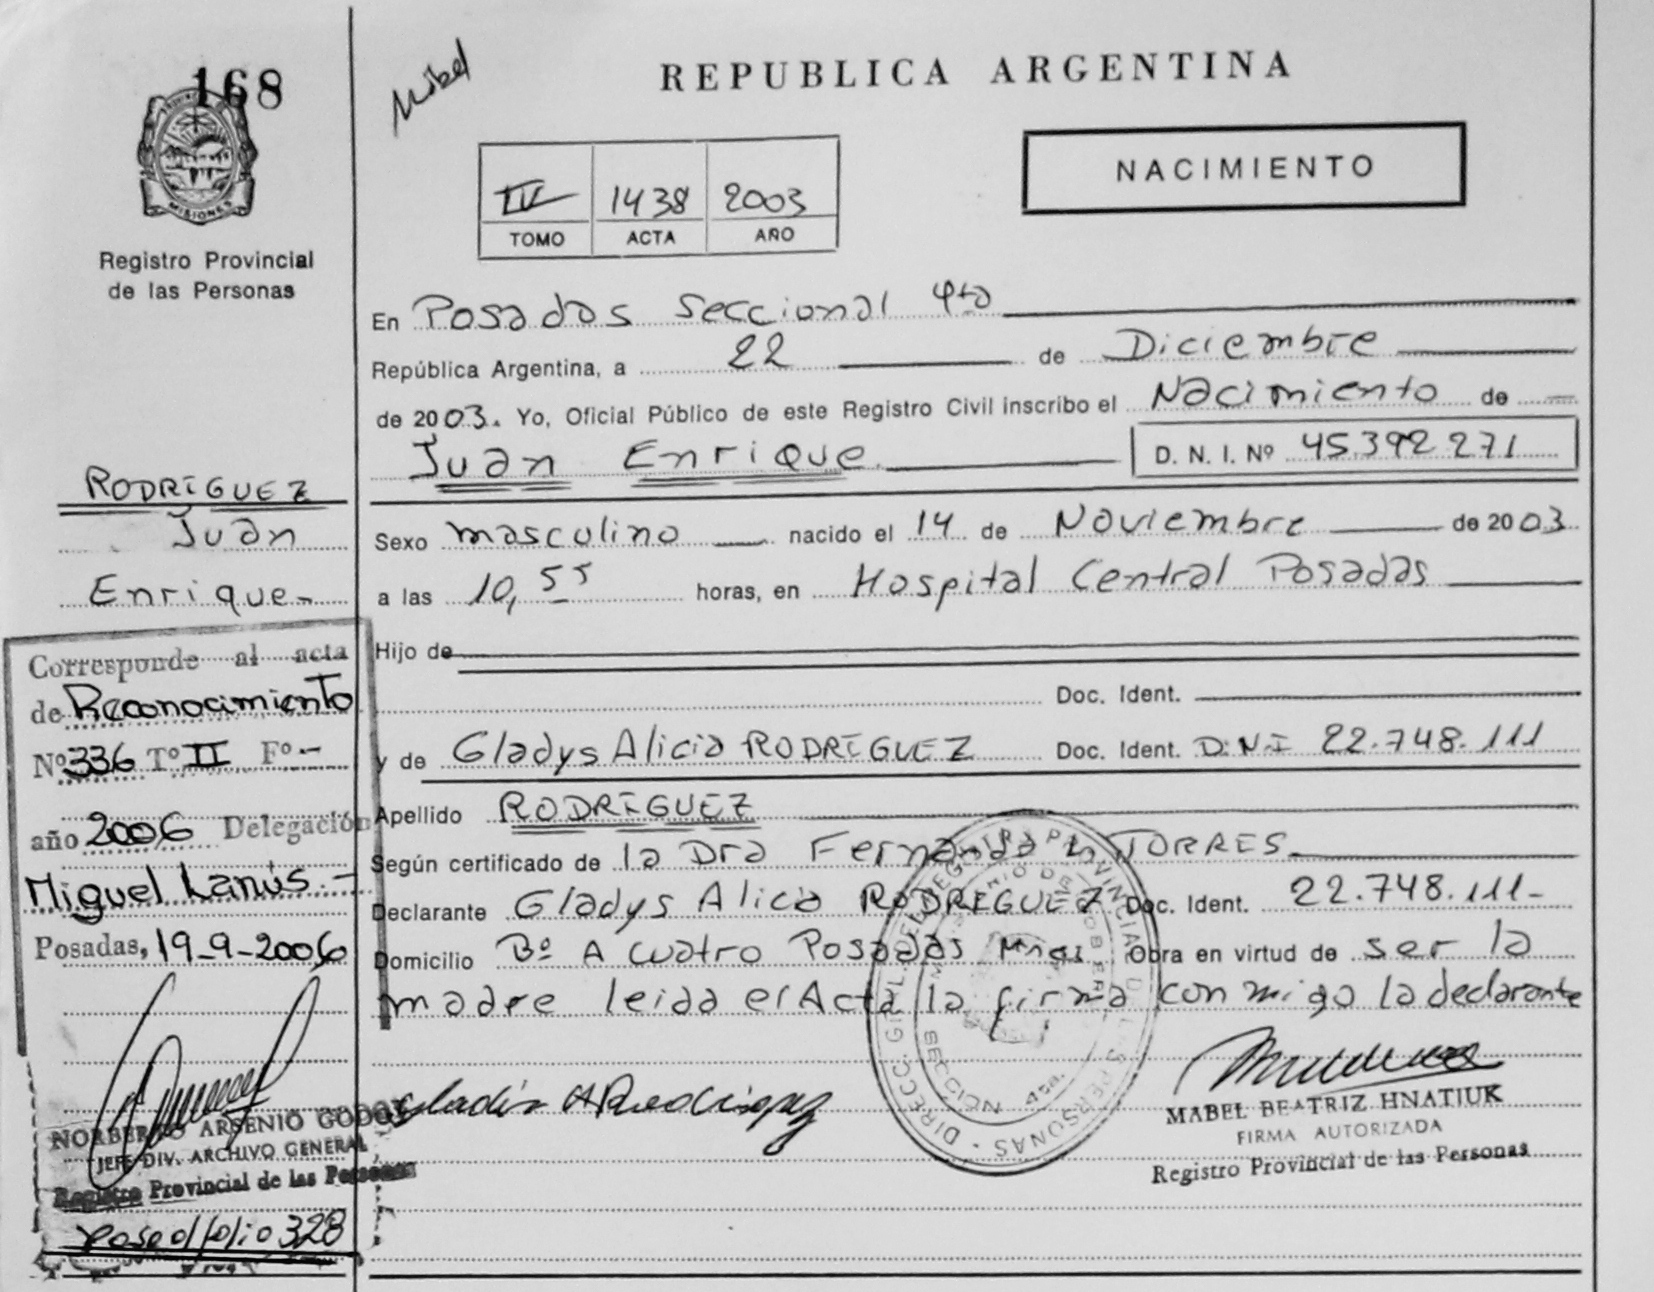 168
MISIONES
Registro Provincial
de las Personas
Mabel
REPUBLICA ARGENTINA
NACIMIENTO
IV 1438 2003
TOMO ACTA AÑO
En Posadas Seccional 4ta
República Argentina, a 22 de Diciembre
de 2003. Yo, Oficial Público de este Registro Civil inscribo el Nacimiento de
Juan Enrique D. N. I. Nº 45.392.271
Sexo masculino nacido el 14 de Noviembre de 2003
a las 10,55 horas, en Hospital Central Posadas
Hijo de
Doc. Ident.
y de Gladys Alicia RODRÍGUEZ Doc. Ident. D.N.I 22.748.111
Apellido RODRÍGUEZ
Según certificado de la Dra Fernanda L. TORRES
Declarante Gladys Alicia RODRÍGUEZ Doc. Ident. 22.748.111-
Domicilio Bº A cuatro Posadas Mnes Obra en virtud de ser la
madre leida el Acta la firma con migo la declarante
RODRÍGUEZ
Juan
Enrique-
Corresponde al acta
de Reconocimiento
Nº 336 Tº II Fº -
año 2006 Delegación
Miguel Lanús.-
Posadas, 19-9-2006
NORBERTO ARSENIO GODOY
JEFE DIV. ARCHIVO GENERAL
Registro Provincial de las Personas
pase al folio 328
DIRECC. GRAL. DEL REGISTRO PROVINCIAL DE LAS PERSONAS
MINISTERIO DE GOBIERNO
SECCION 4ta.
MABEL BEATRIZ HNATIUK
FIRMA AUTORIZADA
Registro Provincial de las Personas